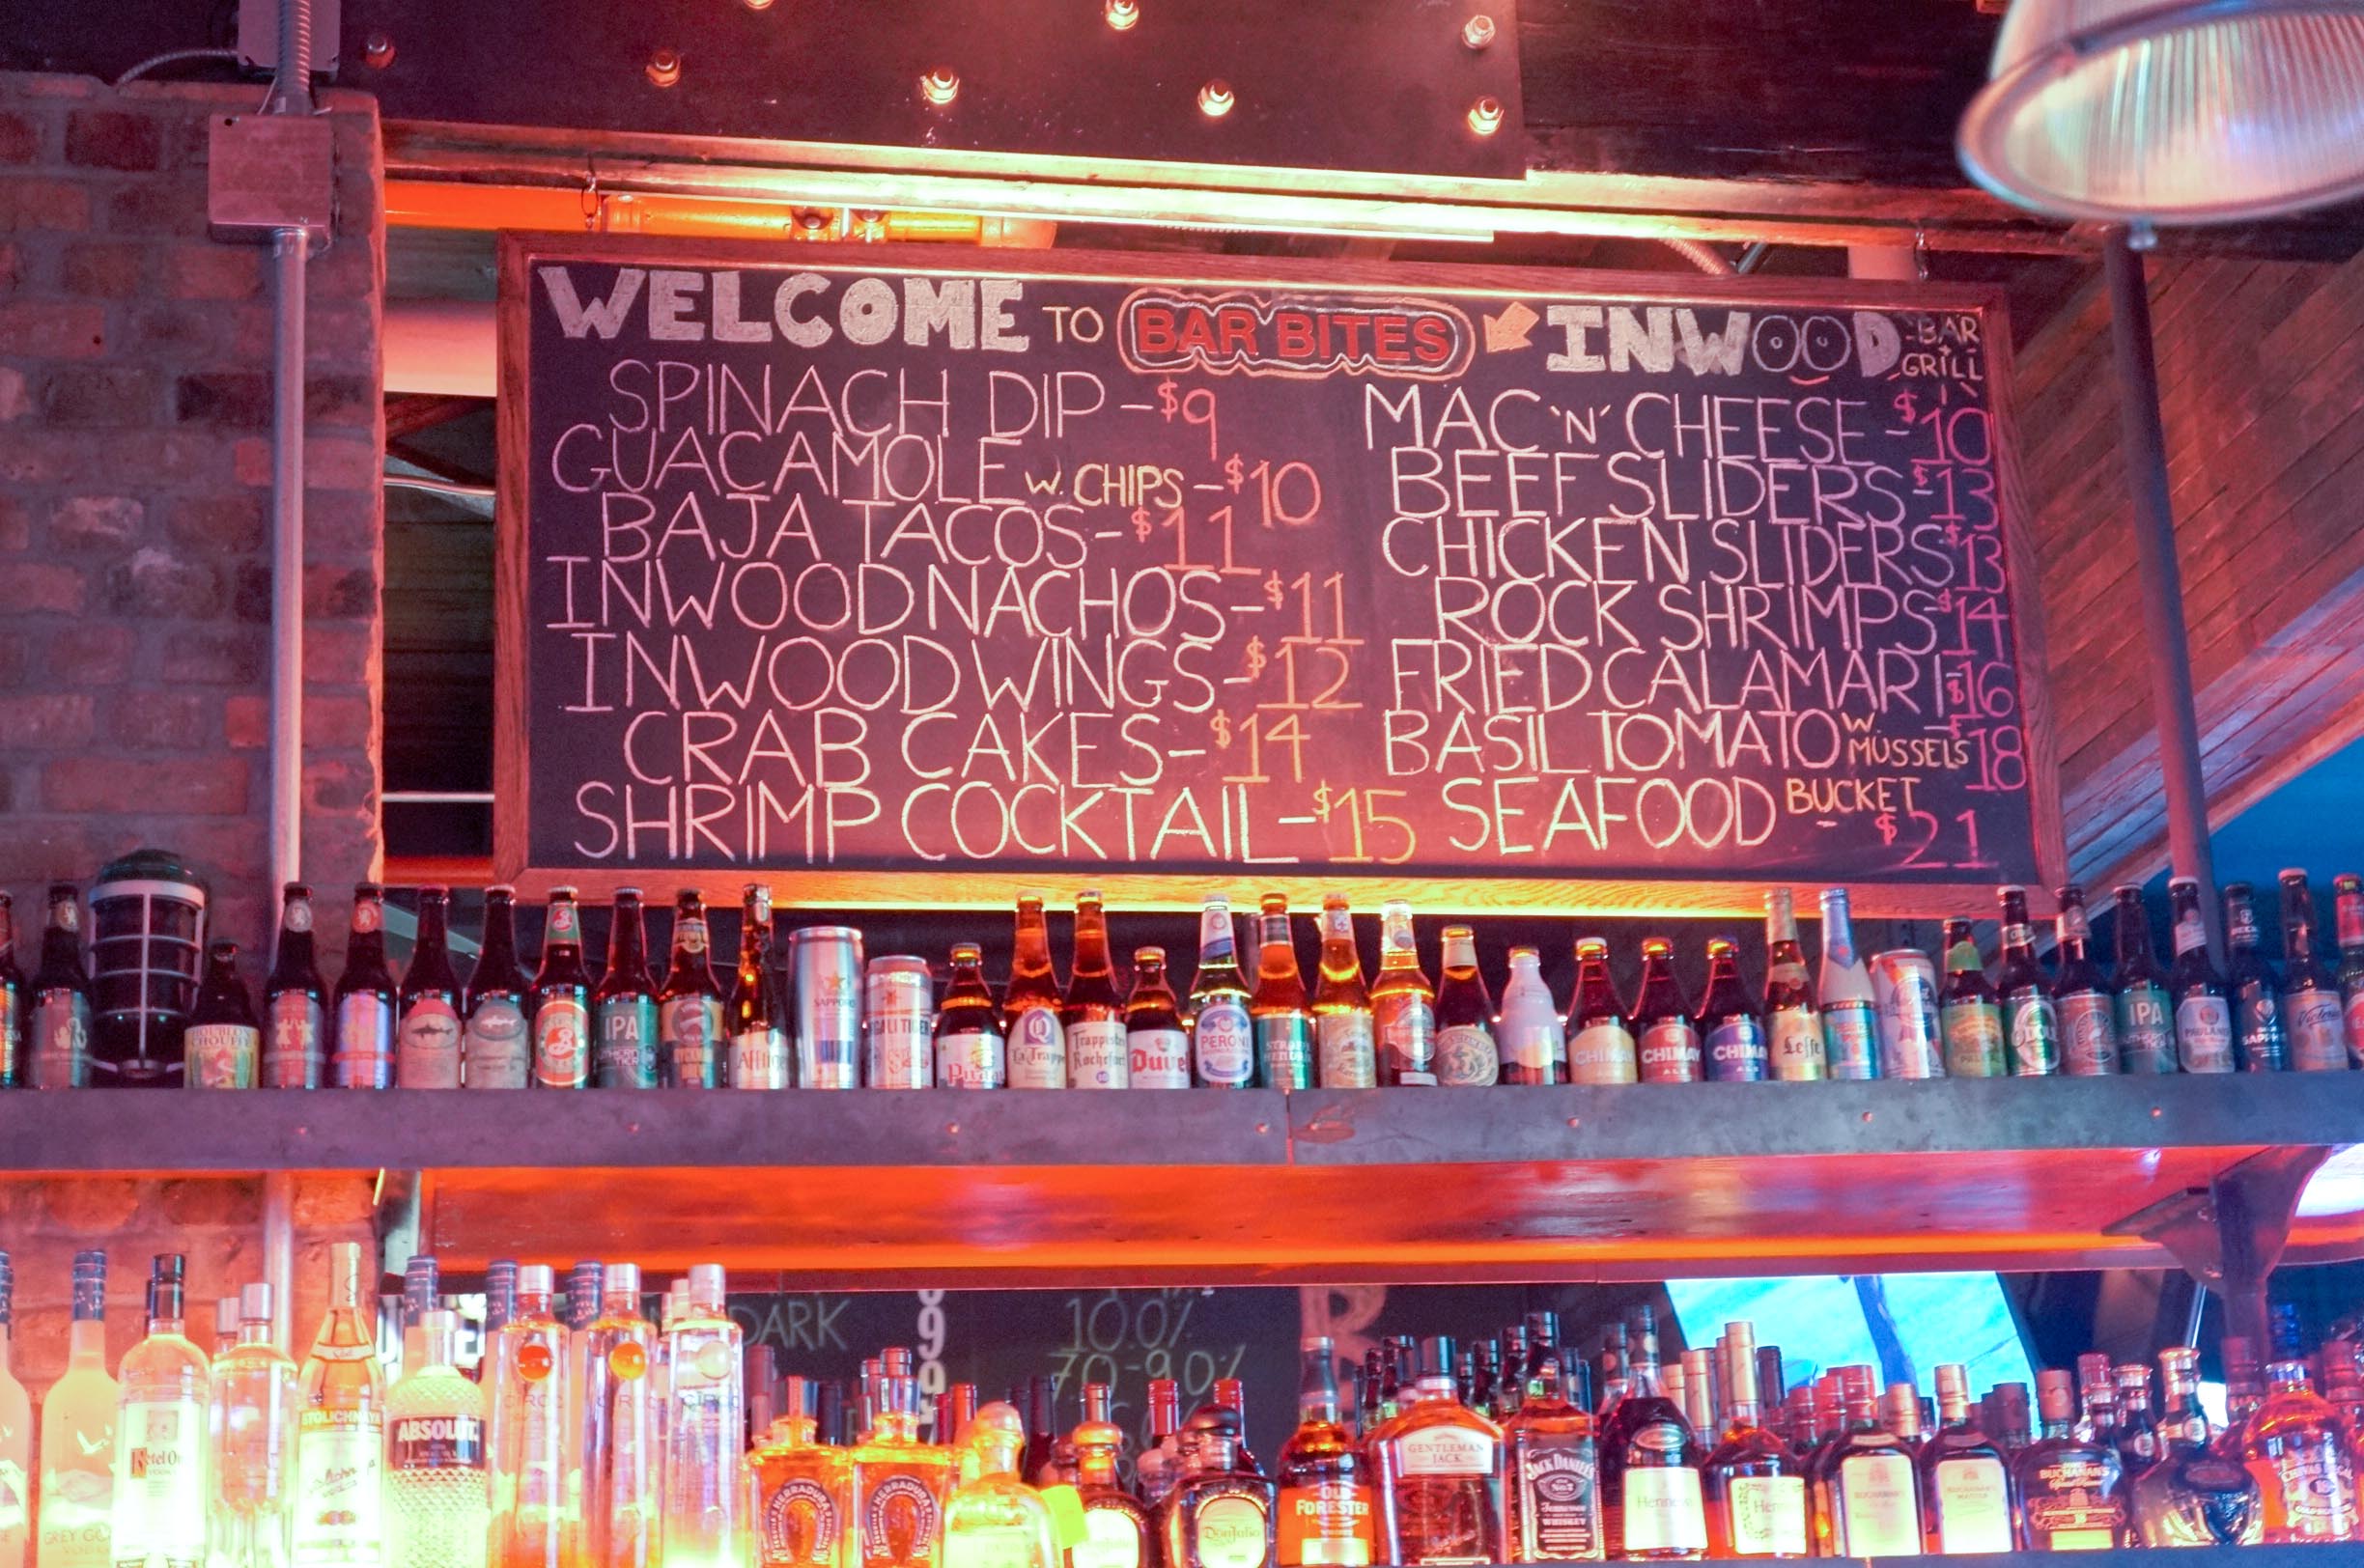 WELCOME TO BAR BITES INWOOD BAR
GRILL
SPINACH DIP - $9
GUACAMOLE W. CHIPS - $10
BAJA TACOS - $11
INWOOD NACHOS - $11
INWOOD WINGS - $12
CRAB CAKES - $14
SHRIMP COCKTAIL - $15
MAC 'N' CHEESE - $10
BEEF SLIDERS - $13
CHICKEN SLIDERS $13
ROCK SHRIMPS $14
FRIED CALAMARI - $16
BASIL TOMATO W. MUSSELS - $18
SEAFOOD BUCKET $21
CHOUFFE
IPA
SAPPORO
La Trappe
Trappistes
Rochefort
10
Duvel
PERONI
CHIMAY
CHIMAY
ALE
CHIMAY
ALE
Leffe
IPA
PAULANER
DARK
10.0%
7.0-9.0%
GREY GOOSE
Ketel One
STOLICHNAYA
ABSOLUT
CIROC
CIROC
CIROC
HERRADURA
HERRADURA
Don Julio
OLD
FORESTER
GENTLEMAN
JACK
JACK DANIEL'S
Tennessee
WHISKEY
Hennessy
Hennessy
BUCHANAN'S
BUCHANAN'S
BUCHANAN'S
CHIVAS REGAL